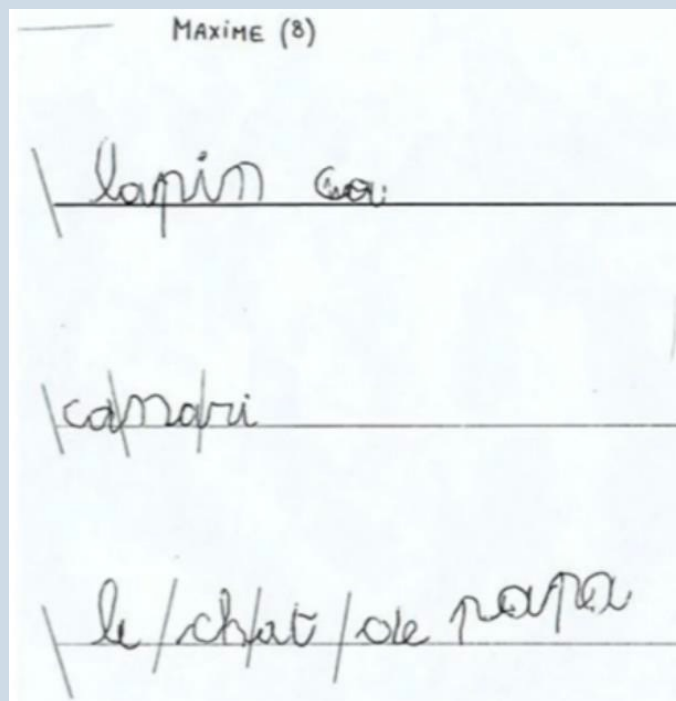 MAXIME (8)
lapin ca
ca/na/ri
le/ch/at/de papa